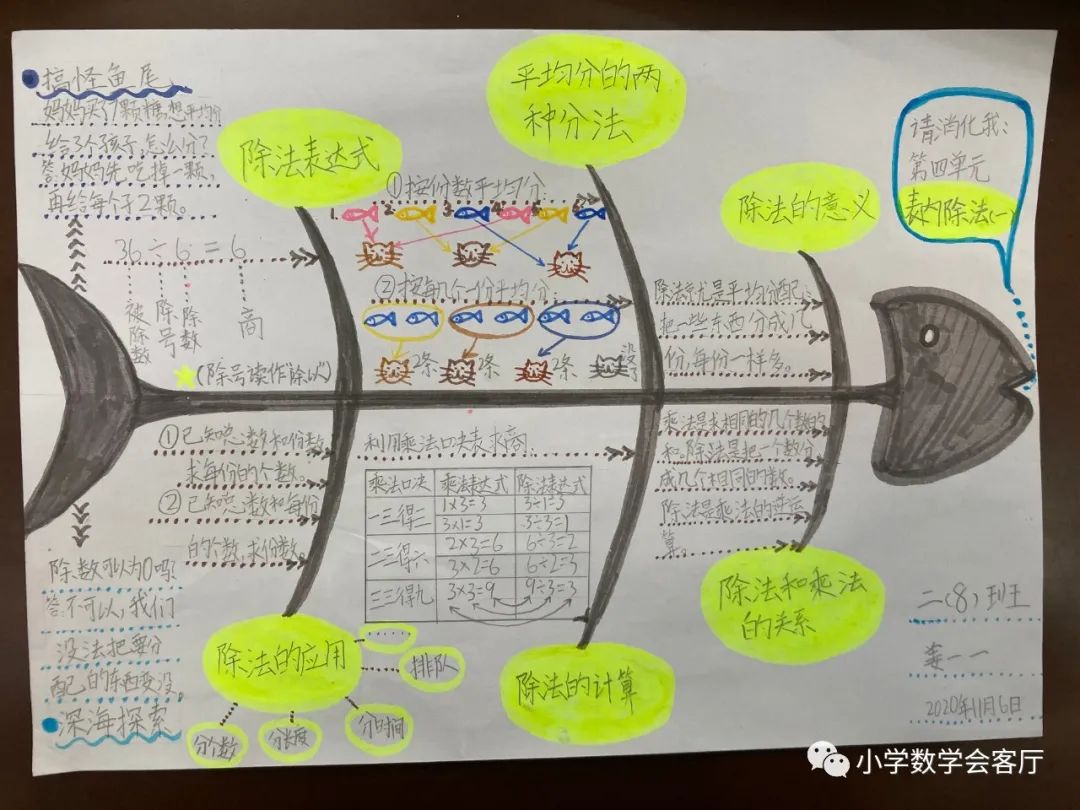 搞怪鱼尾
妈妈买了7颗糖,想平均分
给3个孩子,怎么分?
答:妈妈先吃掉一颗,
再给每个子2颗。
36÷6=6
被除数
除号
除数
商
(除号读作"除以")
除法表达式
平均分的两
种分法
①按份数平均分:
1. 2. 3. 4. 5. 6.
②按每几个一份平均分:
2条 2条 2条 没了
除法的意义
除法就是平均分配:
把一些东西分成几
份,每份一样多。
请消化我:
第四单元
表内除法(一)
①已知总数和份数,
求每份的个数。
②已知总数和每份
的个数,求份数。
除法的应用
分个数
分长度
分时间
排队
......
利用乘法口决表求商.
乘法口决 乘法表达式 除法表达式
一三得三 1×3=3 3÷1=3
3×1=3 3÷3=1
二三得六 2×3=6 6÷3=2
3×2=6 6÷2=3
三三得九 3×3=9 9÷3=3
除法的计算
乘法是求相同的几个数的
和。除法是把一个数分
成几个相同的数。
除法是乘法的逆运
算。
除法和乘法
的关系
除数可以为0吗?
答:不可以,我们
没法把要分
配的东西变没。
深海探索
二(8)班
姜一一
2020年11月6日
小学数学会客厅